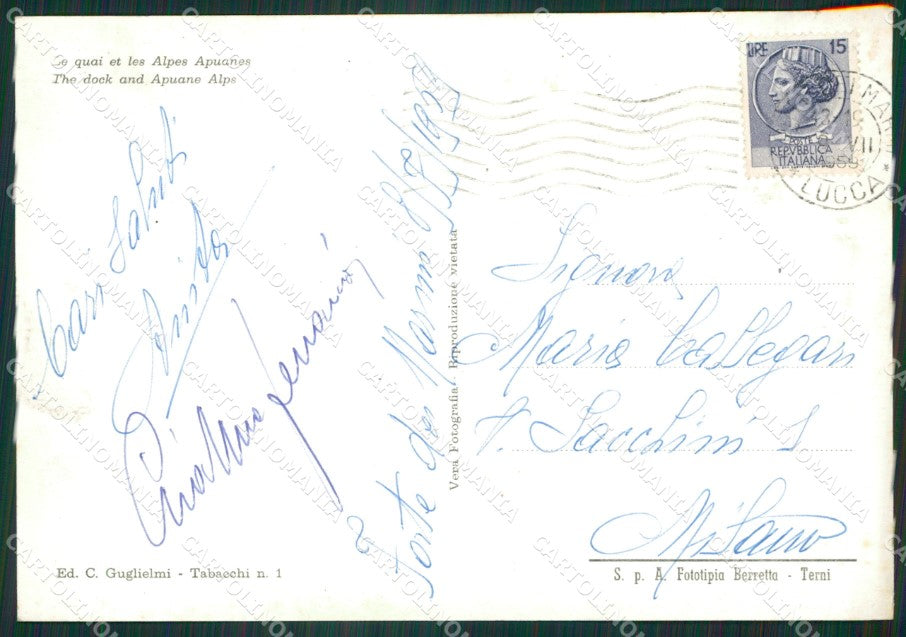 Le quai et les Alpes Apuanes
The dock and Apuane Alps
Cari Saluti
Forte dei Marmi
Vera Fotografia Riproduzione vietata
Ed. C. Guglielmi - Tabacchi n. 1
LIRE 15
POSTE
REPVBBLICA
ITALIANA
LUCCA
Signora
Maria Callegari
V. Sacchini 1
Milano
S. p. A. Fototipia Berretta - Terni
CARTOLINOMANIA